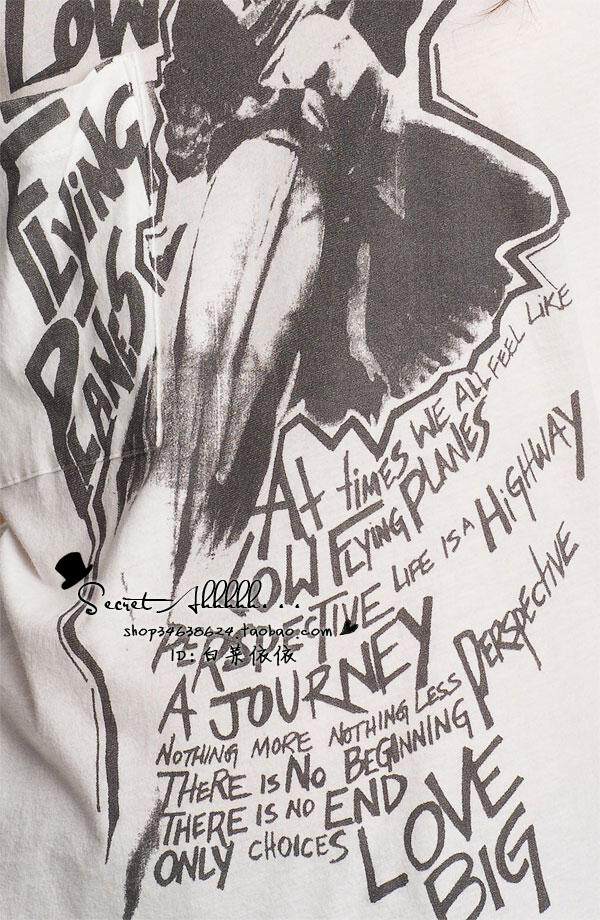 LOW
FLYING
PLANES
At times WE ALL FEEL LIKE
LOW FLYING PLANES
PERSPECTIVE LIFE IS A HiGHWAY
A JOURNEY
NOTHING MORE NOTHING LESS PERSPECTIVE
THERE IS NO BEGINNING
THERE IS NO END
ONLY CHOICES LOVE
BIG
Secret Ahhhhh...
shop34638624.taobao.com
ID: 白菜依依